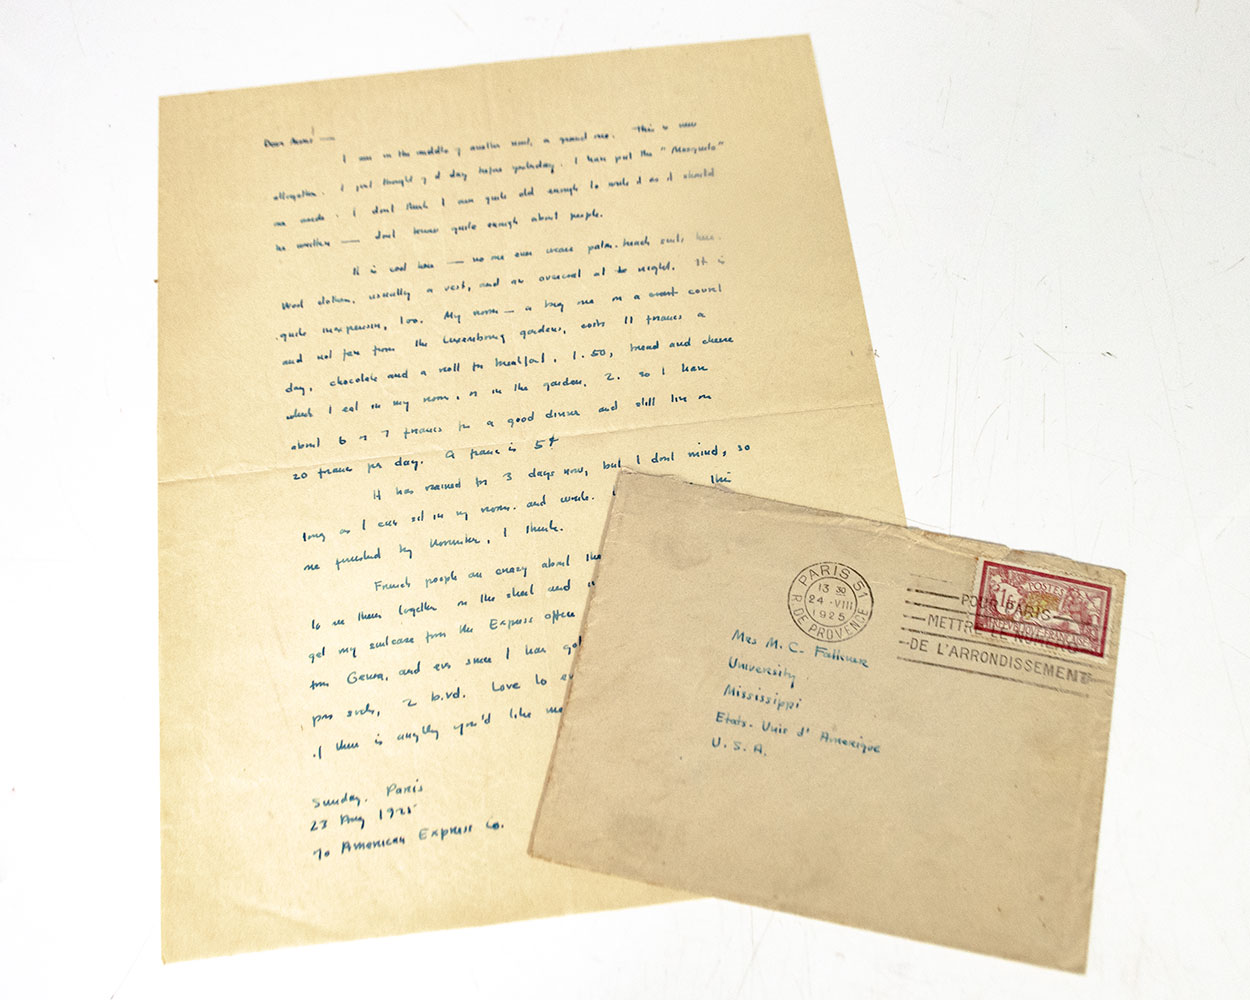 Dear Moms! —
I am in the middle of another novel, a grand one. This is new
altogether. I just thought of it day before yesterday. I have put the "Mosquito"
one aside. I dont think I am quite old enough to write it as it should
be written — dont know quite enough about people.
It is cool here — no one ever wears palm-beach suits here.
Wool clothes, usually a vest, and an overcoat at night. It is
quite inexpensive, too. My room — a big one on a court
and not far from the Luxembourg gardens, costs 11 francs a
day, chocolate and a roll for breakfast, 1.50, bread and cheese
which I eat in my room, or in the garden, 2. so I have
about 6 or 7 francs for a good dinner and still live on
20 francs per day. A franc is 5¢
It has rained for 3 days now, but I dont mind, so
long as I can sit in my room and write. this
one finished by November, I think.
French people are crazy about the
to see them together on the street and
get my suitcase from the Express office
from Genoa, and ever since I have
2 b.vd. Love to
if there is anything you'd like me
Sunday. Paris
23 Aug 1925
To American Express Co.
PARIS 51
13 30
24 - VIII
1925
R. DE PROVENCE
POSTES
POUR PARIS
METTRE LE NUMERO
DE L'ARRONDISSEMENT
Mrs M. C. Falkner
University
Mississippi
Etats-Unis d'Amerique
U. S. A.